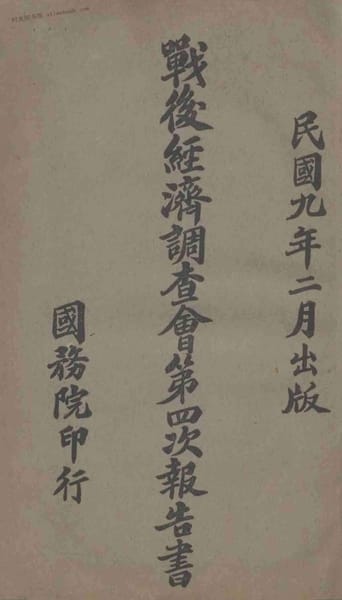 民國九年二月出版
戰後經濟調查會第四次報告書
國務院印行